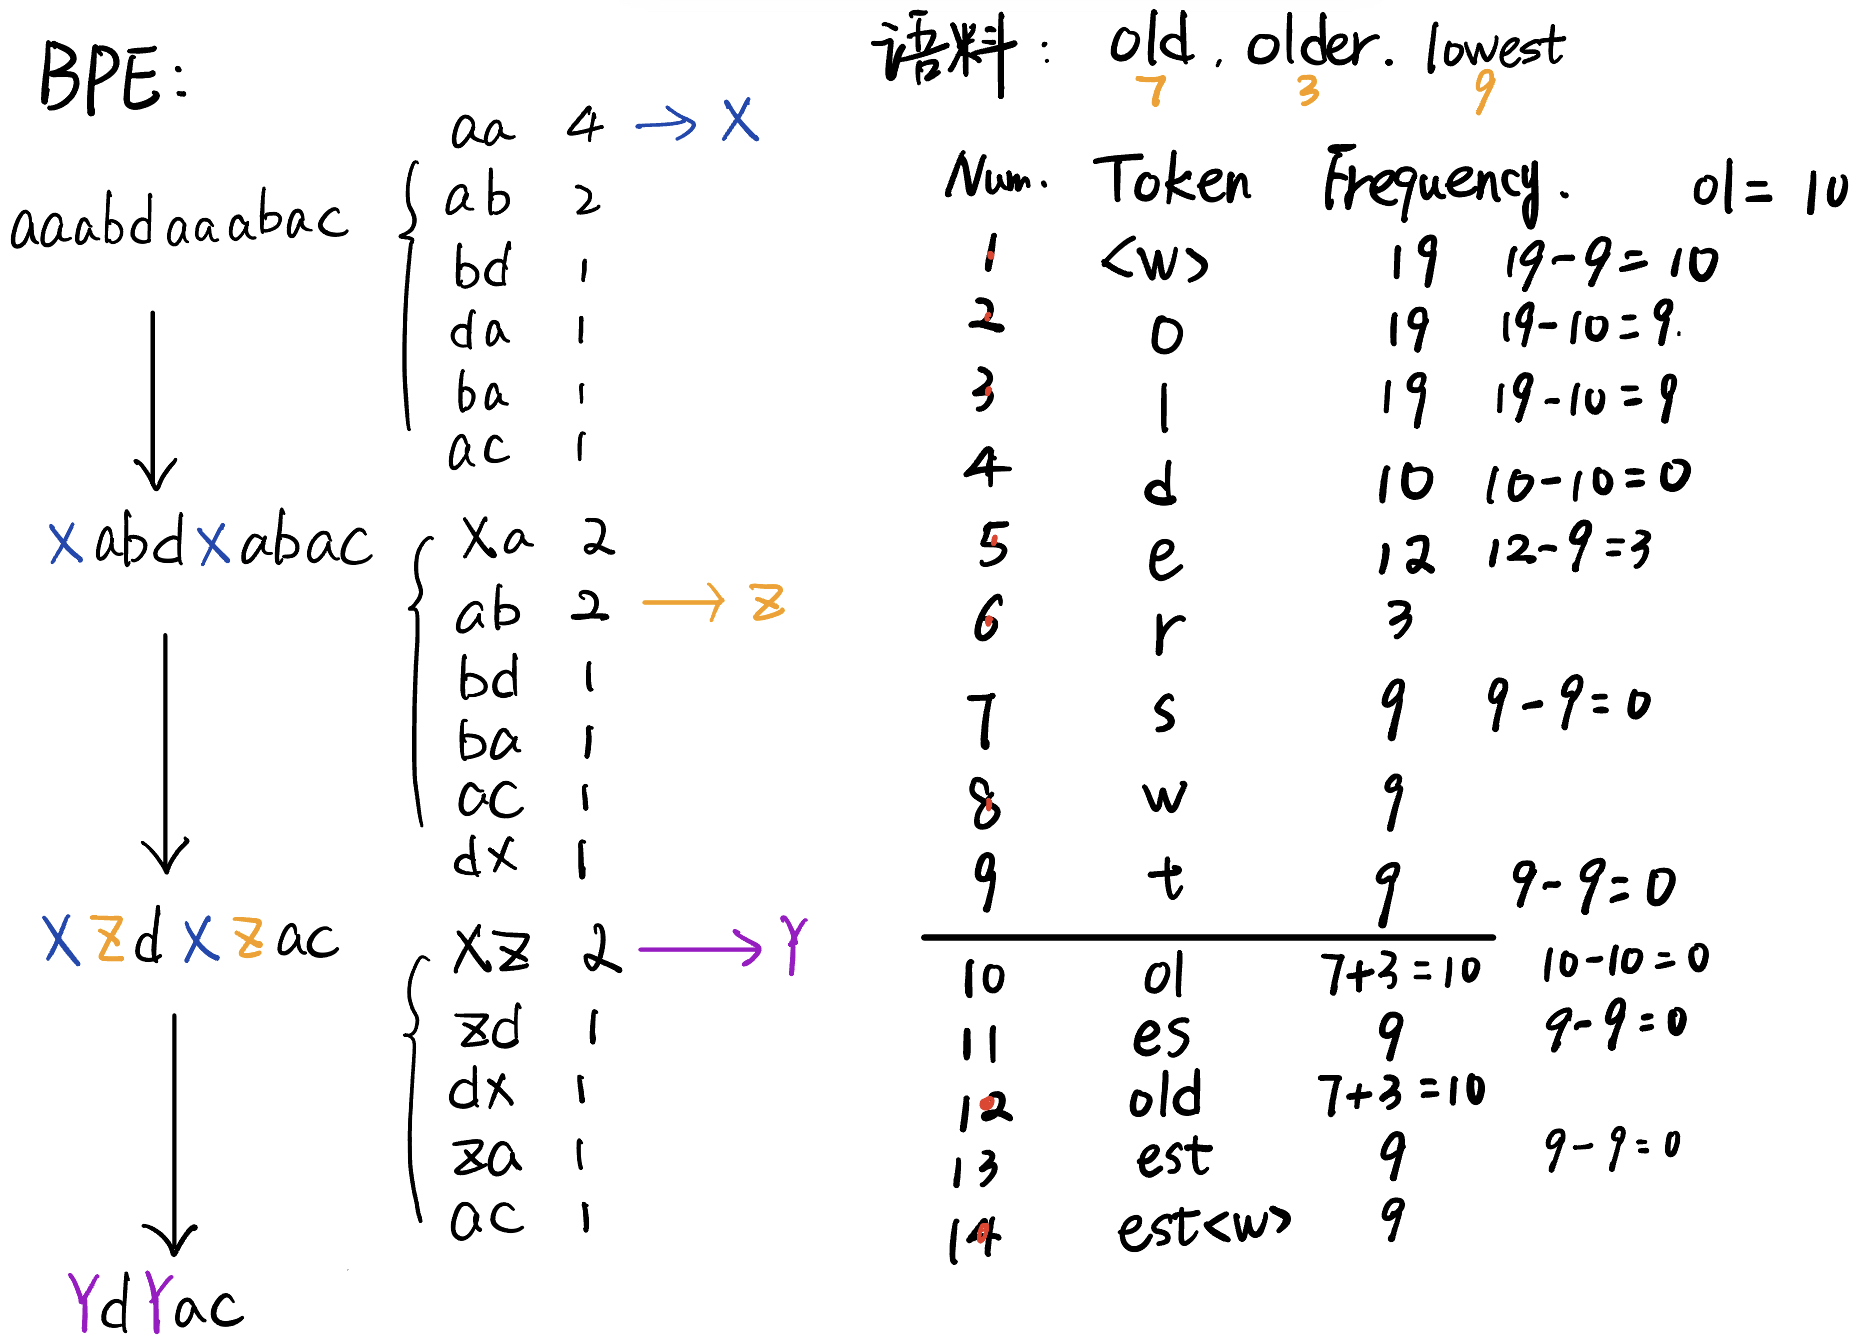 BPE:
aaabdaaabac
aa 4 → X
ab 2
bd 1
da 1
ba 1
ac 1
XabdXabac
Xa 2
ab 2 → Z
bd 1
ba 1
ac 1
dX 1
XZdXZac
XZ 2 → Y
Zd 1
dX 1
Za 1
ac 1
YdYac
语料: old. older. lowest
7 3 9
Num. Token Frequency. ol= 10
1 <w> 19 19-9=10
2 o 19 19-10=9.
3 l 19 19-10=9
4 d 10 10-10=0
5 e 12 12-9=3
6 r 3
7 s 9 9-9=0
8 w 9
9 t 9 9-9=0
10 ol 7+3=10 10-10=0
11 es 9 9-9=0
12 old 7+3=10
13 est 9 9-9=0
14 est<w> 9